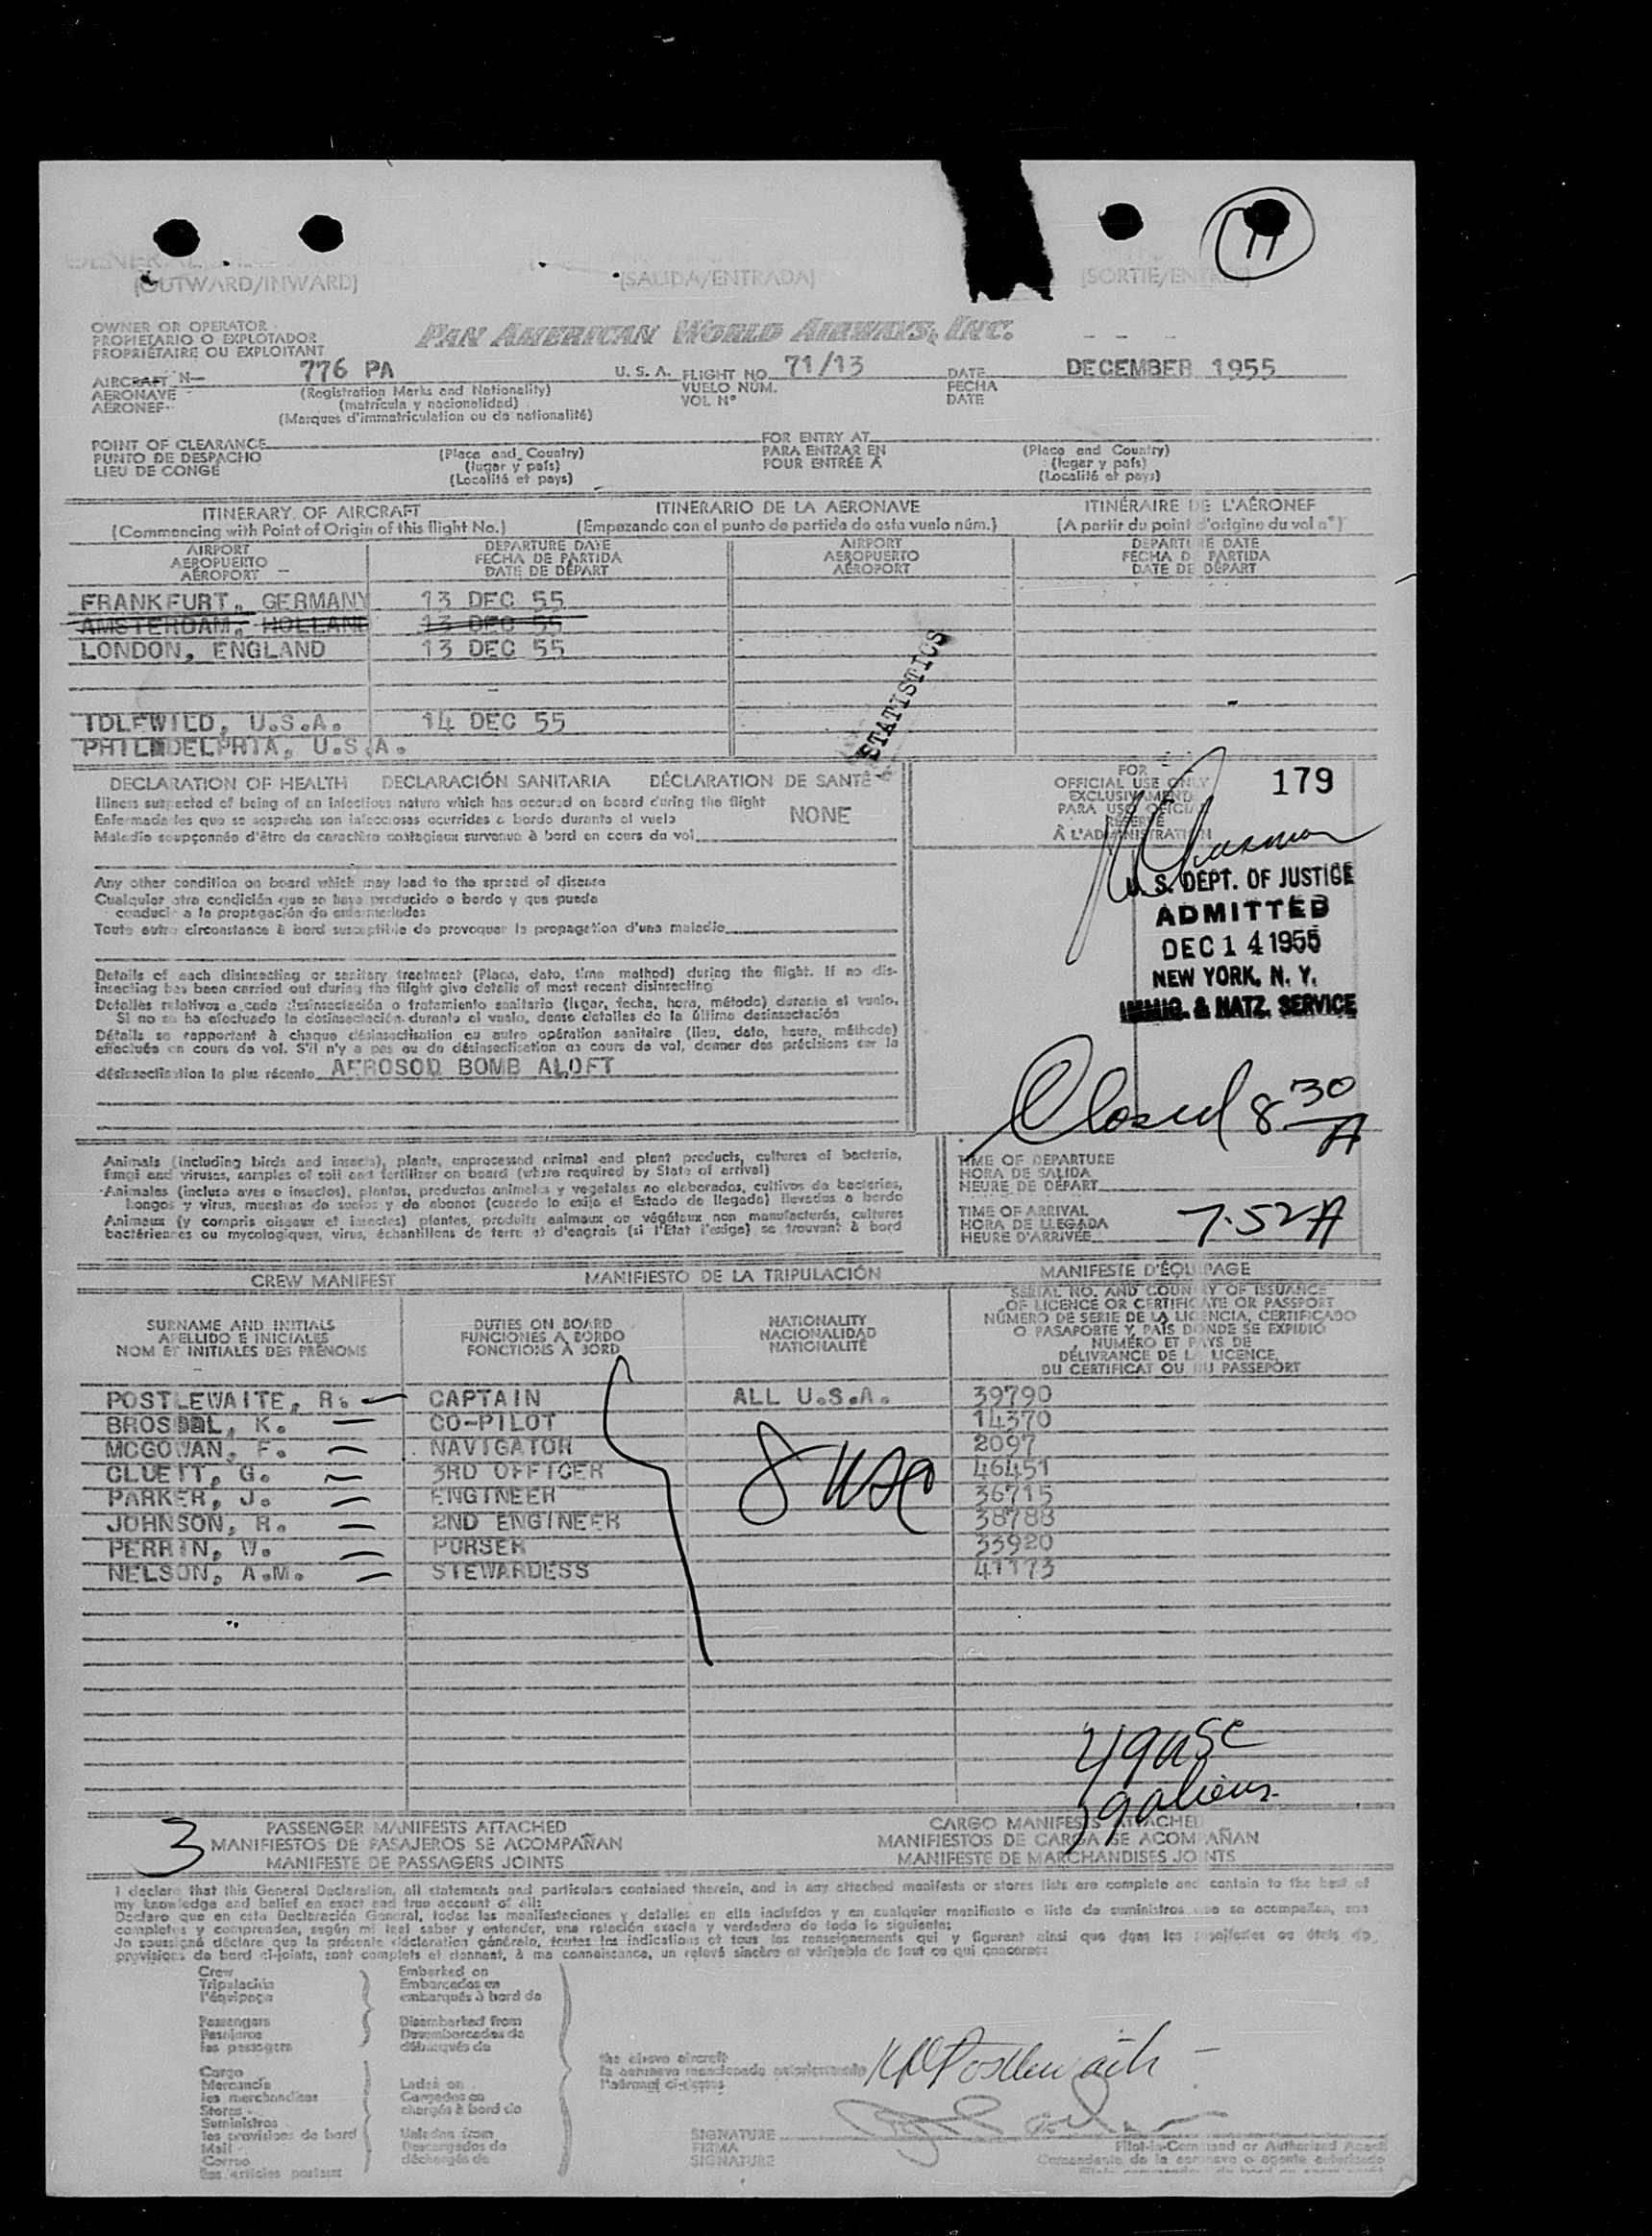 11
(OUTWARD/INWARD) (SALIDA/ENTRADA) (SORTIE/ENTRÉE)
OWNER OR OPERATOR
PROPIETARIO O EXPLOTADOR
PROPRIÉTAIRE OU EXPLOITANT
PAN AMERICAN WORLD AIRWAYS, INC.
AIRCRAFT N— 776 PA U. S. A. FLIGHT NO. 71/13 DATE DECEMBER 1955
AERONAVE (Registration Marks and Nationality) VUELO NÚM. FECHA
AÉRONEF (matrícula y nacionalidad) VOL Nº DATE
(Marques d'immatriculation ou de nationalité)
POINT OF CLEARANCE FOR ENTRY AT
PUNTO DE DESPACHO (Place and Country) PARA ENTRAR EN (Place and Country)
LIEU DE CONGÉ (lugar y país) POUR ENTRÉE À (lugar y país)
(Localité et pays) (Localité et pays)
ITINERARY OF AIRCRAFT ITINERARIO DE LA AERONAVE ITINÉRAIRE DE L'AÉRONEF
(Commencing with Point of Origin of this flight No.) (Empezando con el punto de partida de esta vuelo núm.) (A partir du point d'origine du vol nº)
AIRPORT DEPARTURE DATE AIRPORT DEPARTURE DATE
AEROPUERTO FECHA DE PARTIDA AEROPUERTO FECHA DE PARTIDA
AÉROPORT DATE DE DÉPART AÉROPORT DATE DE DÉPART
FRANKFURT, GERMANY 13 DEC 55
AMSTERDAM, HOLLAND 13 DEC 55
LONDON, ENGLAND 13 DEC 55
STATISTICS
IDLEWILD, U.S.A. 14 DEC 55
PHILADELPHIA, U.S.A.
DECLARATION OF HEALTH DECLARACIÓN SANITARIA DÉCLARATION DE SANTÉ
Illness suspected of being of an infectious nature which has occured on board during the flight
Enfermedades que se sospecha son infecciosas ocurridas a bordo durante el vuelo NONE
Maladie soupçonnée d'être de caractère contagieux survenue à bord en cours de vol
Any other condition on board which may lead to the spread of disease
Cualquier otra condición que se haya producido a bordo y que pueda
conducir a la propagación de enfermedades
Toute autre circonstance à bord susceptible de provoquer la propagation d'une maladie
Details of each disinsecting or sanitary treatment (Place, date, time method) during the flight. If no dis-
insecting has been carried out during the flight give details of most recent disinsecting
Detalles relativos a cada desinsectación o tratamiento sanitario (lugar, fecha, hora, método) durante el vuelo.
Si no se ha efectuado la desinsectación durante el vuelo, dense detalles de la última desinsectación
Détails se rapportant à chaque désinsectisation ou autre opération sanitaire (lieu, date, heure, méthode)
effectués en cours de vol. S'il n'y a pas eu de désinsectisation en cours de vol, donner des précisions sur la
désinsectisation la plus récente AEROSOD BOMB ALOFT
FOR
OFFICIAL USE ONLY 179
EXCLUSIVAMENTE
PARA USO OFICIAL
RÉSERVÉ
À L'ADMINISTRATION
U. S. DEPT. OF JUSTICE
ADMITTED
DEC 14 1955
NEW YORK, N. Y.
IMMIG. & NATZ. SERVICE
Closed 8 30 A
Animals (including birds and insects), plants, unprocessed animal and plant products, cultures of bacteria,
fungi and viruses, samples of soil and fertilizer on board (where required by State of arrival)
Animales (incluso aves e insectos), plantas, productos animales y vegetales no elaborados, cultivos de bacterias,
hongos y virus, muestras de suelos y de abonos (cuando lo exija el Estado de llegada) llevados a bordo
Animaux (y compris oiseaux et insectes) plantes, produits animaux ou végétaux non manufacturés, cultures
bactériennes ou mycologiques, virus, échantillons de terre et d'engrais (si l'Etat l'exige) se trouvant à bord
TIME OF DEPARTURE
HORA DE SALIDA
HEURE DE DÉPART
TIME OF ARRIVAL
HORA DE LLEGADA 7.52 A
HEURE D'ARRIVÉE
CREW MANIFEST MANIFIESTO DE LA TRIPULACIÓN MANIFESTE D'ÉQUIPAGE
SURNAME AND INITIALS
APELLIDO E INICIALES
NOM ET INITIALES DES PRÉNOMS
DUTIES ON BOARD
FUNCIONES A BORDO
FONCTIONS À BORD
NATIONALITY
NACIONALIDAD
NATIONALITÉ
SERIAL NO. AND COUNTRY OF ISSUANCE
OF LICENCE OR CERTIFICATE OR PASSPORT
NÚMERO DE SERIE DE LA LICENCIA, CERTIFICADO
O PASAPORTE Y PAÍS DONDE SE EXPIDIÓ
NUMÉRO ET PAYS DE
DÉLIVRANCE DE LA LICENCE,
DU CERTIFICAT OU DU PASSEPORT
POSTLEWAITE, R. CAPTAIN ALL U.S.A. 39790
BROSDAL, K. CO-PILOT 14370
MCGOWAN, F. NAVIGATOR 2097
CLUETT, G. 3RD OFFICER 46451
PARKER, J. ENGINEER 36715
JOHNSON, R. 2ND ENGINEER 38788
PERRIN, W. PURSER 33920
NELSON, A.M. STEWARDESS 41173
8 USC
49 USC
39 aliens
3
PASSENGER MANIFESTS ATTACHED CARGO MANIFESTS ATTACHED
MANIFIESTOS DE PASAJEROS SE ACOMPAÑAN MANIFIESTOS DE CARGA SE ACOMPAÑAN
MANIFESTE DE PASSAGERS JOINTS MANIFESTE DE MARCHANDISES JOINTS
I declare that this General Declaration, all statements and particulars contained therein, and in any attached manifests or stores lists are complete and contain to the best of
my knowledge and belief an exact and true account of all:
Declaro que en esta Declaración General, todas las manifestaciones y detalles en ella incluídos y en cualquier manifiesto o lista de suministros que se acompañan, son
completos y comprenden, según mi leal saber y entender, una relación exacta y verdadera de todo lo siguiente:
Je soussigné déclare que la présente déclaration générale, toutes les indications et tous les renseignements qui y figurent ainsi que dans les manifestes ou états de
provisions de bord ci-joints, sont complets et donnent, à ma connaissance, un relevé sincère et véritable de tout ce qui concerne:
Crew Embarked on
Tripulación Embarcados en
l'équipage embarqués à bord de
Passengers Disembarked from
Pasajeros Desembarcados de
les passagers débarqués de
Cargo
Mercancía Laded on
les merchandises Cargados en
Stores chargés à bord de
Suministros
les provisions de bord Unladen from
Mail Descargados de
Correo déchargés de
les articles postaux
the above aircraft
la aeronave mencionada anteriormente
l'aéronef ci-dessus
SIGNATURE
FIRMA
SIGNATURE
Pilot-in-Command or Authorized Agent
Comandante de la aeronave o agente autorizado